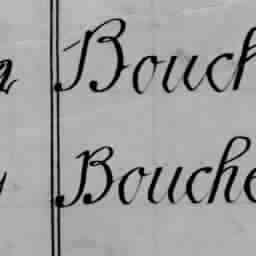 Bouch
Bouche